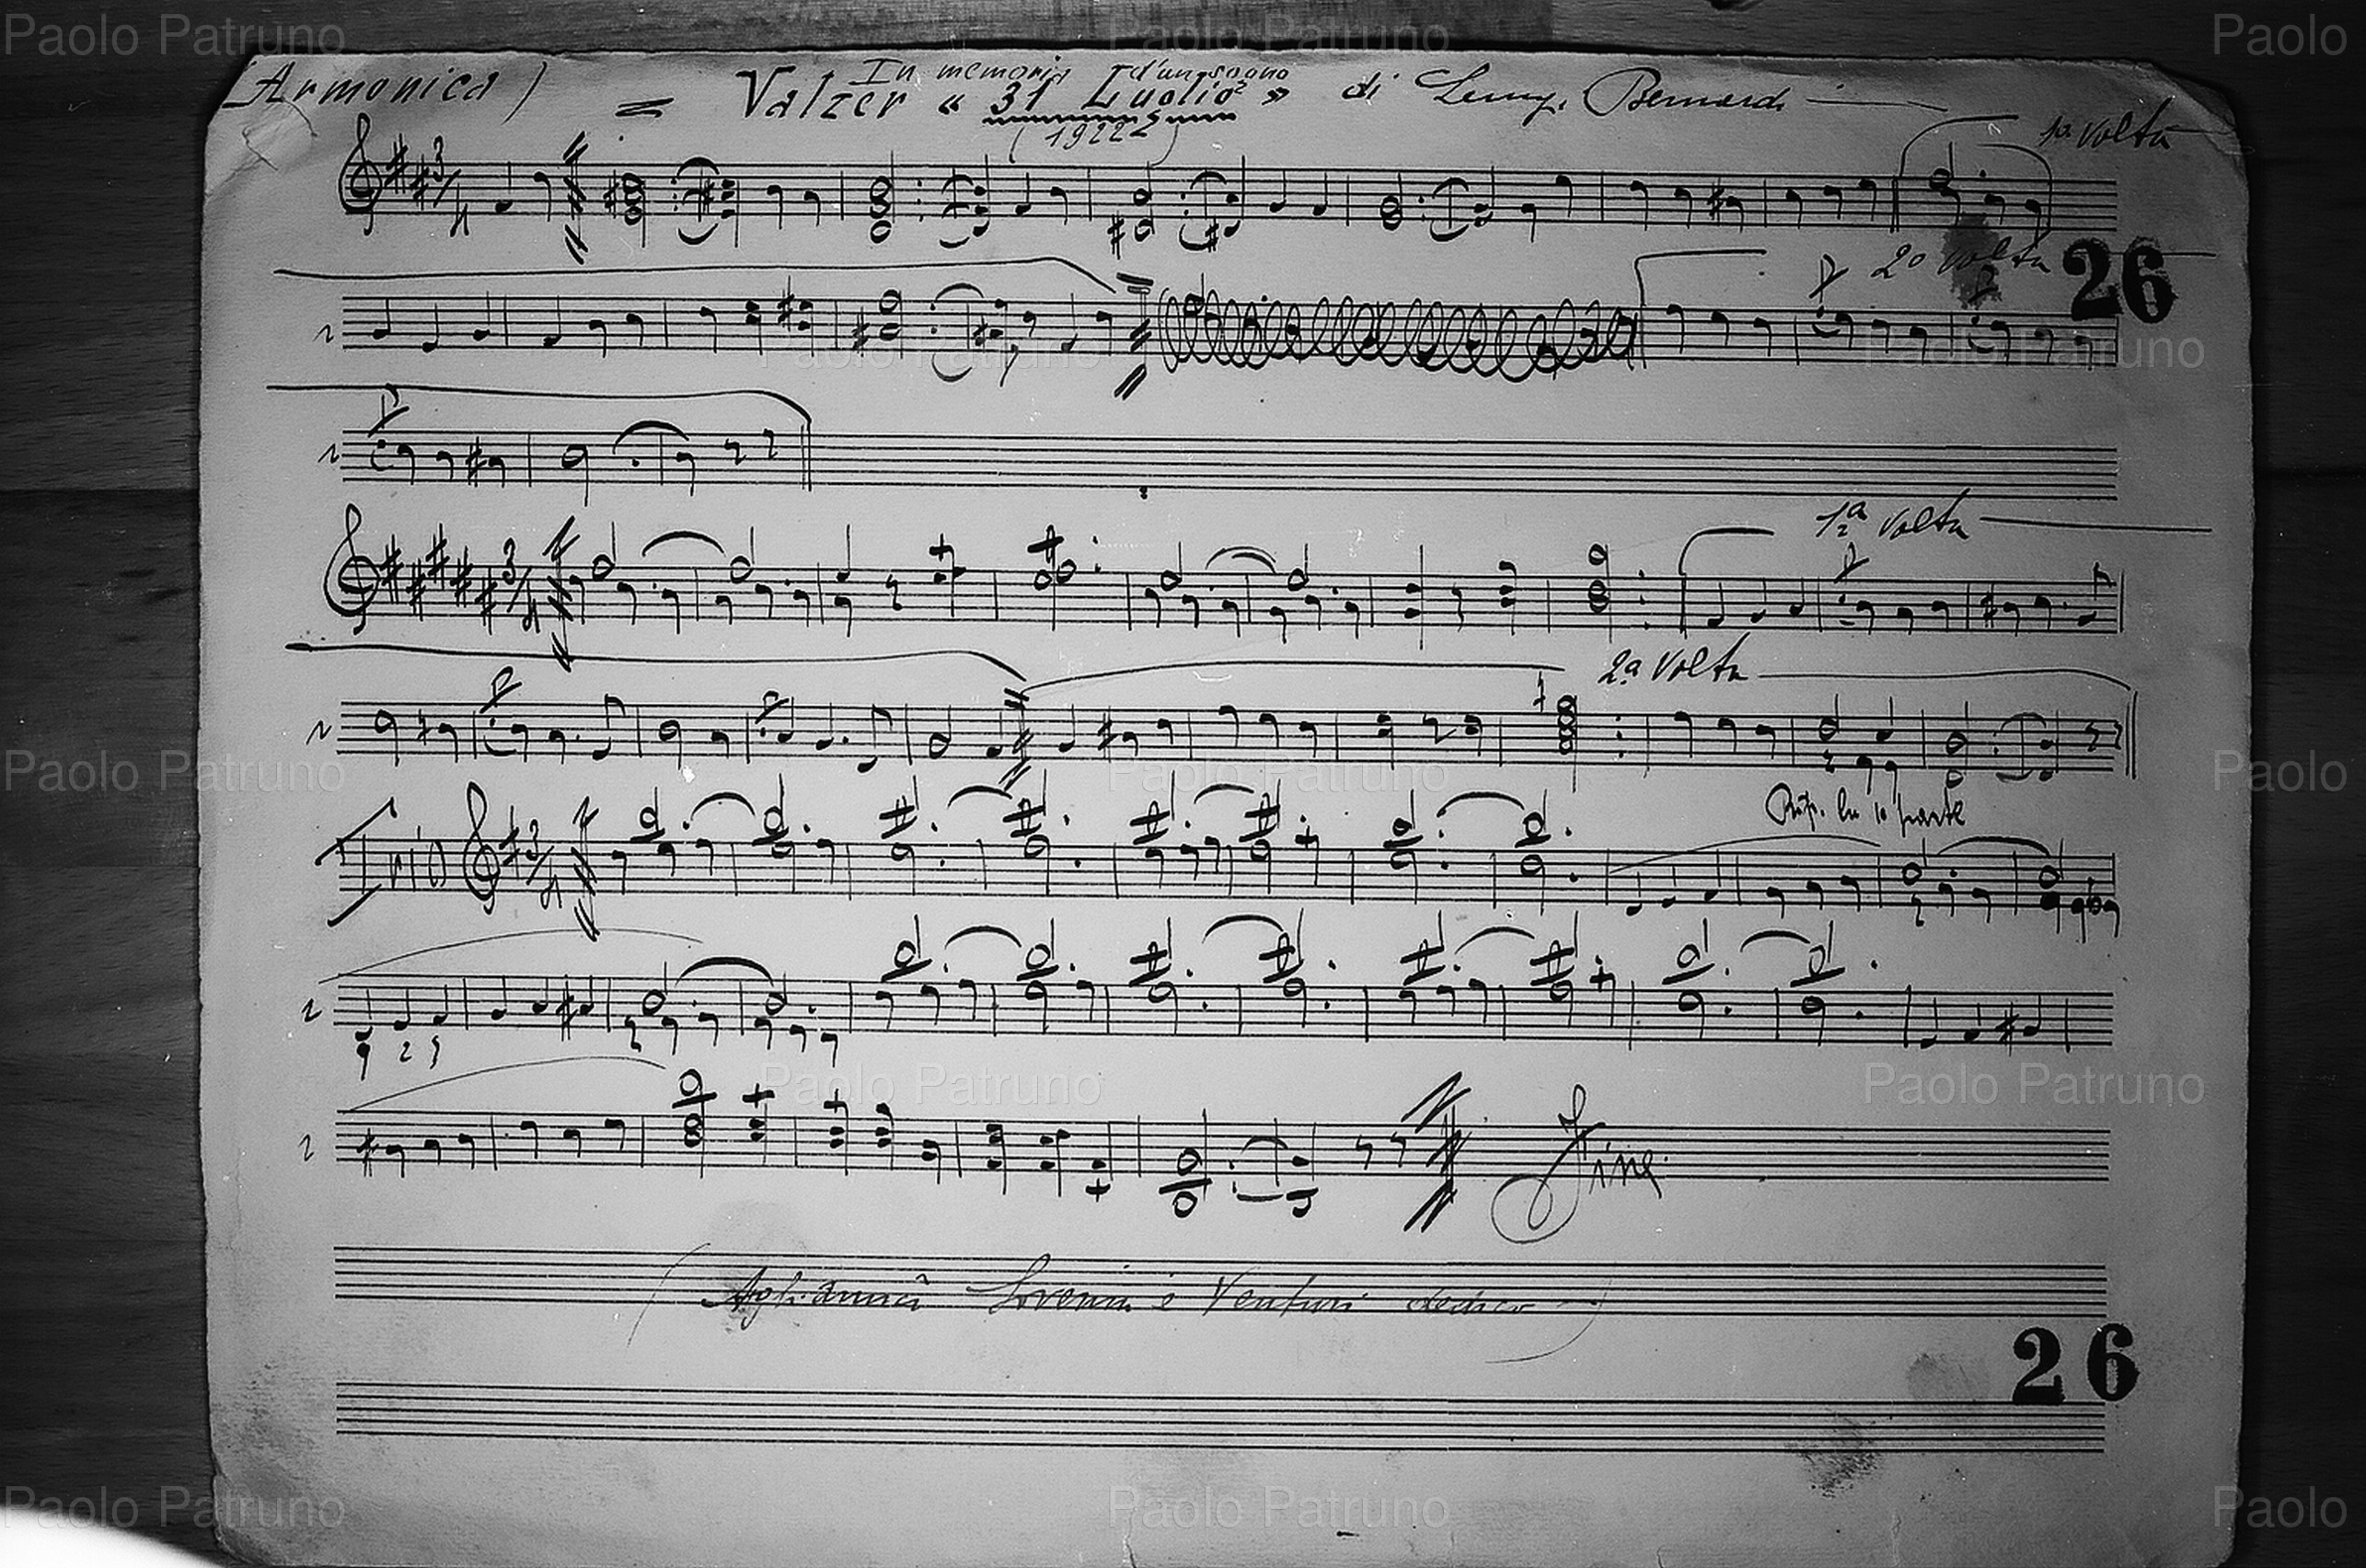 Paolo Patruno Paolo Patruno Paolo
(Armonica)
In memoria d'un sogno
= Valzer « 31 Luglio » di Bernardi
(1922)
1ª Volta
2ª Volta
26
Paolo Patruno Paolo Patruno
1ª Volta
2ª Volta
Paolo Patruno Paolo Patruno Paolo
Rip. la 1ª parte
Trio
Paolo Patruno Paolo Patruno
Fine
Agli amici e Venturi dedico
26
Paolo Patruno Paolo Patruno Paolo